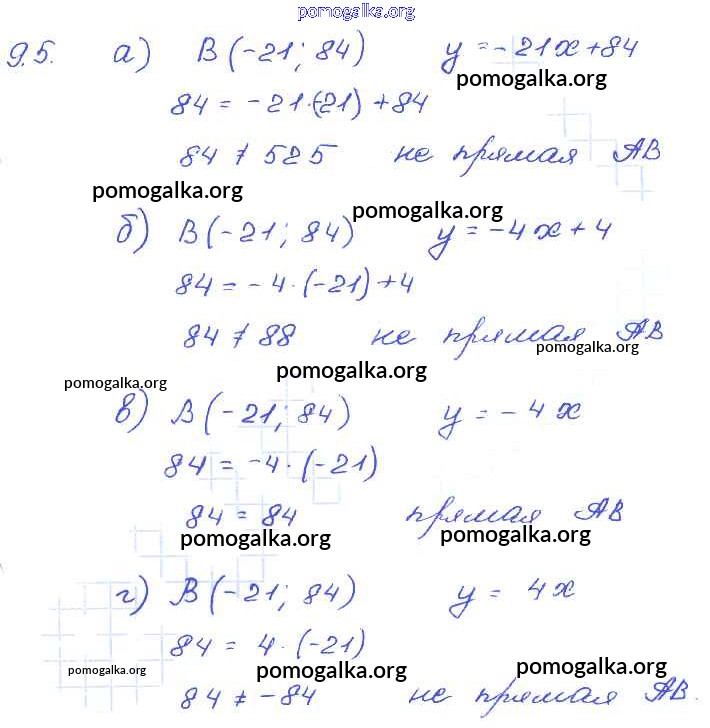 pomogalka.org
9.5. а) B (-21; 84) y = -21x + 84
pomogalka.org
84 = -21·(-21) + 84
84 ≠ 525 не прямая AB
pomogalka.org
pomogalka.org
б) B (-21; 84) y = -4x + 4
84 = -4·(-21) + 4
84 ≠ 88 не прямая AB
pomogalka.org
pomogalka.org
pomogalka.org
в) B (-21; 84) y = -4x
84 = -4·(-21)
84 = 84 прямая AB
pomogalka.org pomogalka.org
г) B (-21; 84) y = 4x
84 = 4·(-21)
pomogalka.org pomogalka.org pomogalka.org
84 ≠ -84 не прямая AB.